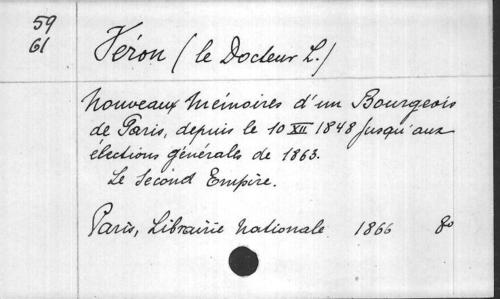 59
61
Véron (le Docteur L.)
Nouveaux Mémoires d'un Bourgeois
de Paris, depuis le 10 XII 1848 jusqu'aux
élections générales de 1863.
Le Second Empire.
Paris, Librairie Nationale 1866 8o